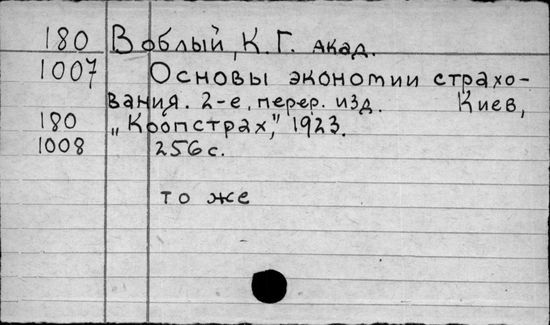 180 Воблый, К. Г. акад.
1007 Основы экономии страхо-
вания. 2-е, перер. изд. Киев,
180 „Коопстрах,” 1923.
1008 256 с.
то же